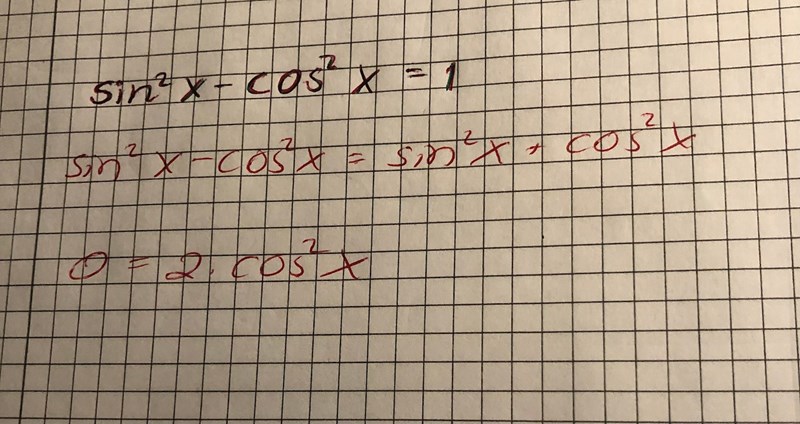 sin² x - cos² x = 1
sin² x - cos² x = sin² x + cos² x
0 = 2 · cos² x